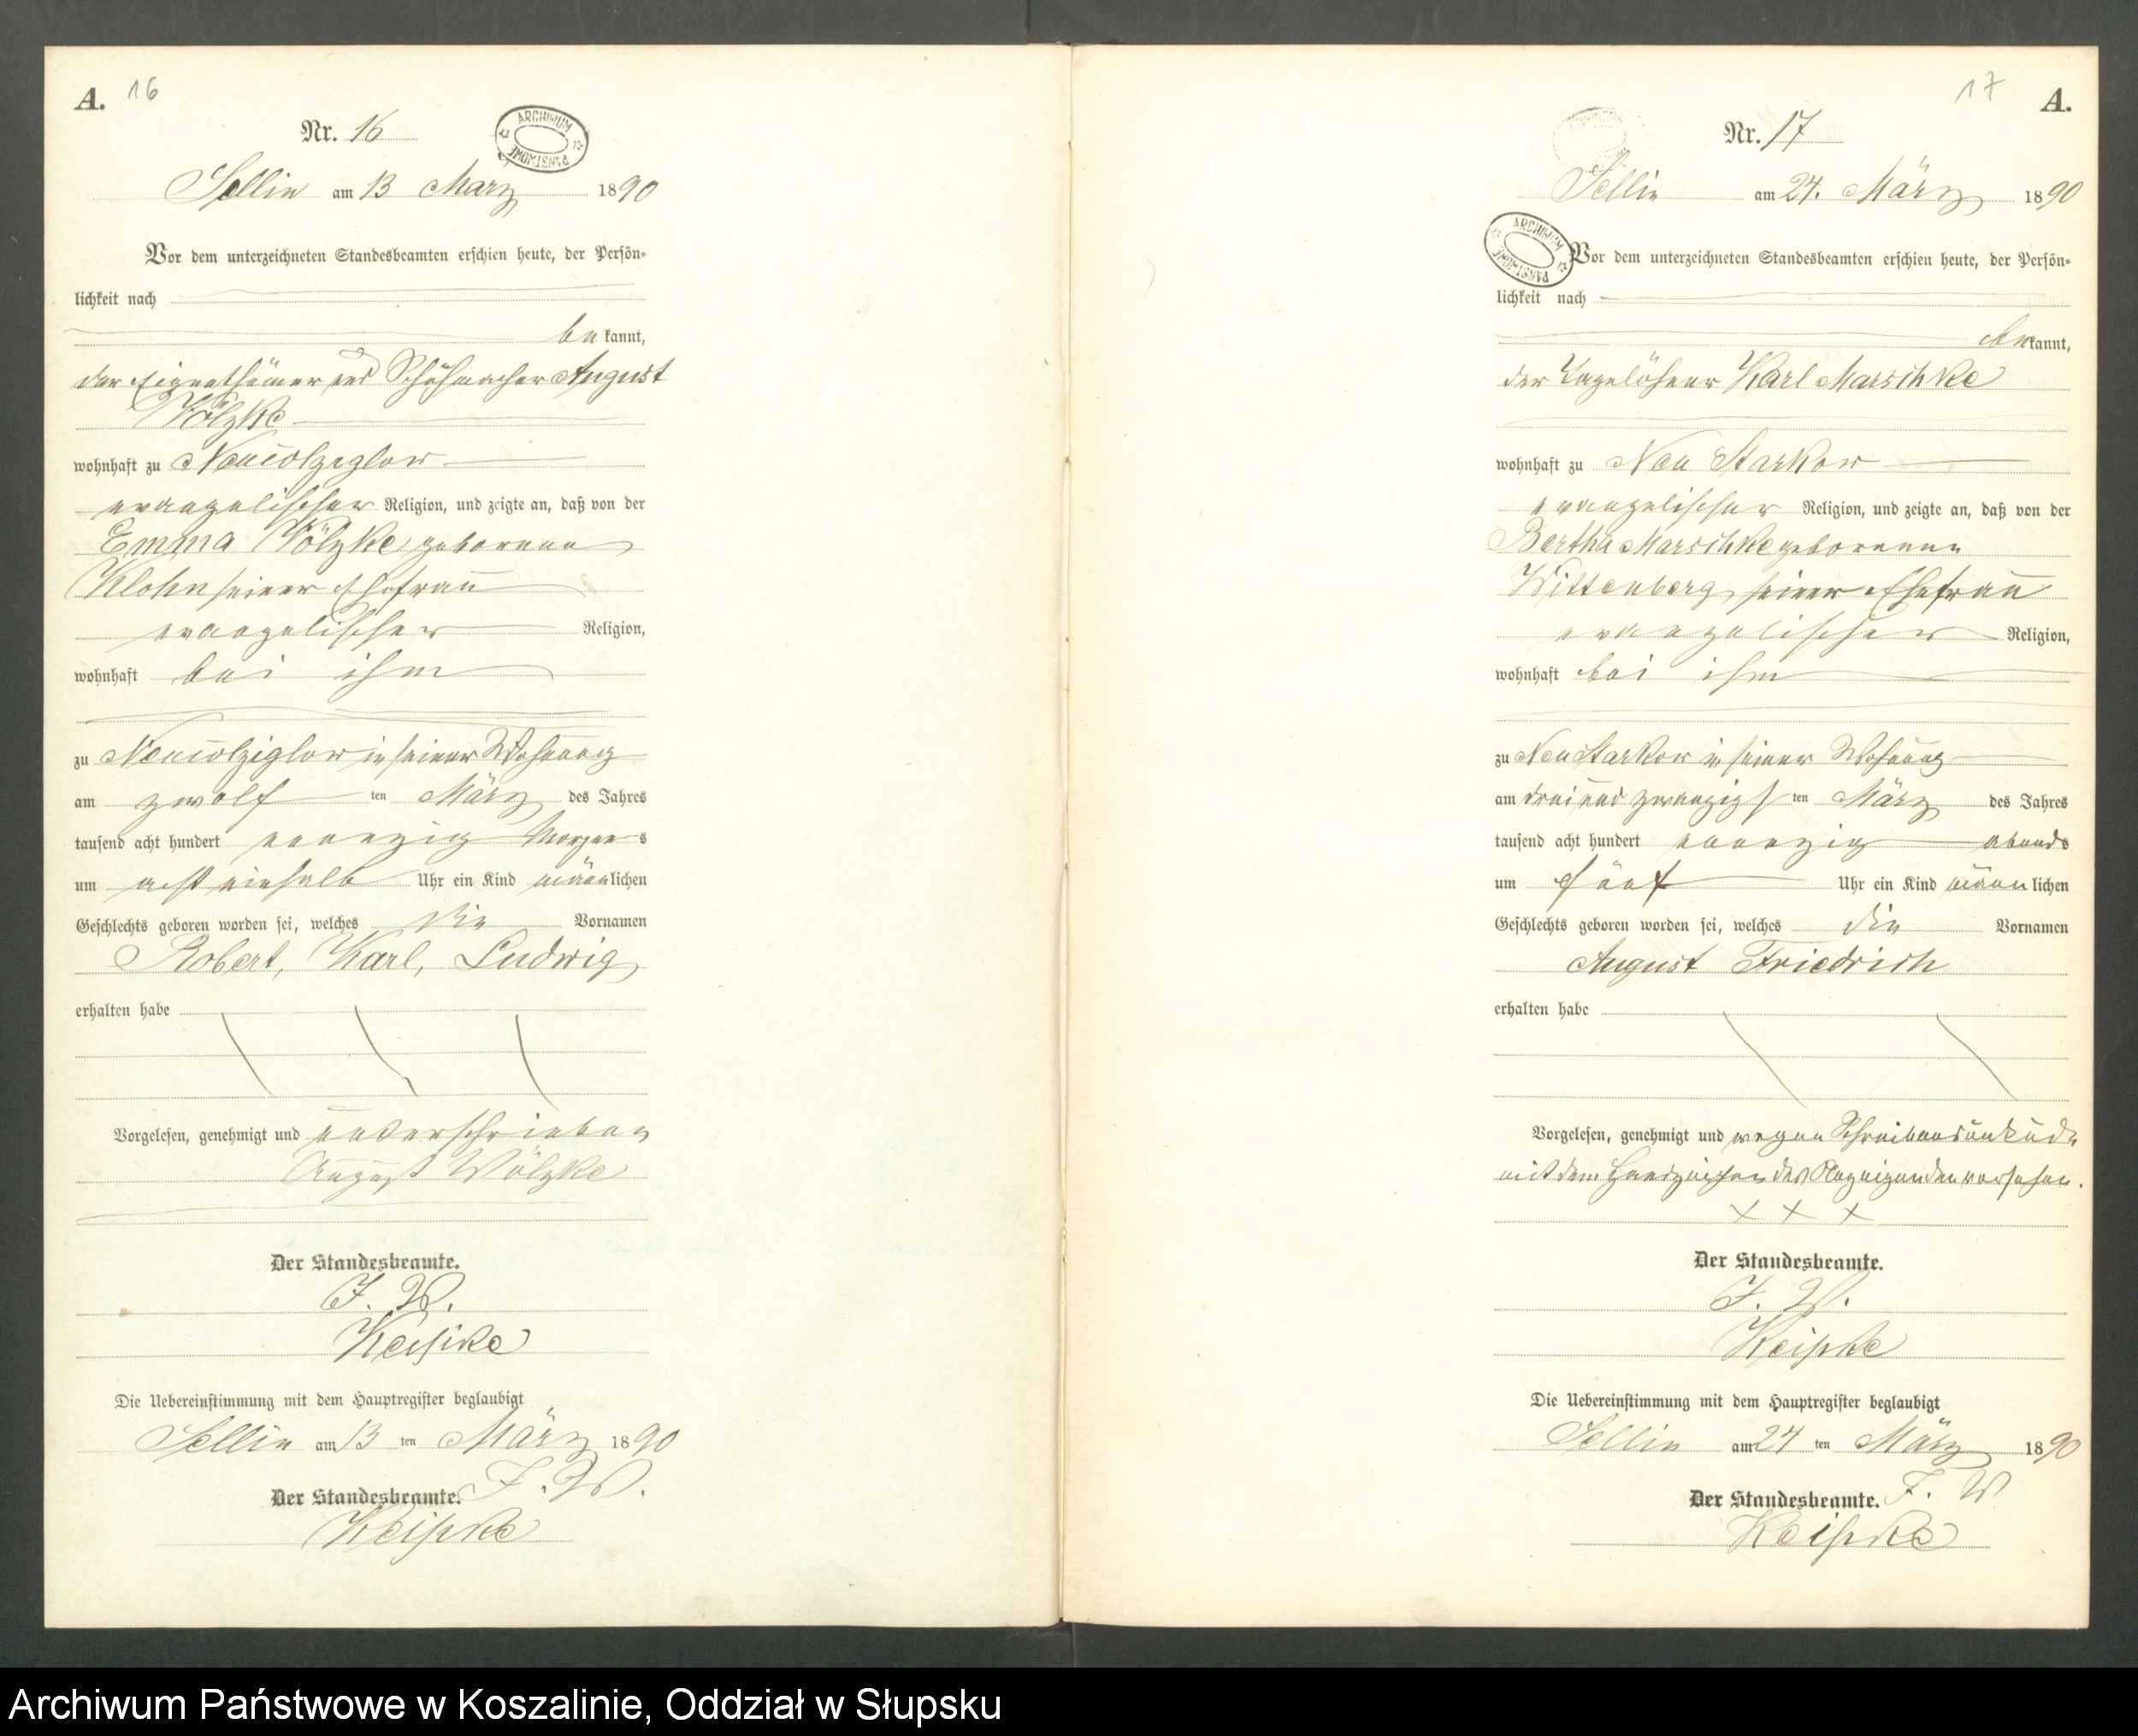 A. 16
Nr. 16
ARCHIWUM PAŃSTWOWE
Sellin am 13 März 1890
Vor dem unterzeichneten Standesbeamten erschien heute, der Persön-
lichkeit nach
bekannt,
der Eigenthümer und Schuhmacher August
Völzke
wohnhaft zu Neuwolziglow
evangelischer Religion, und zeigte an, daß von der
Emma Völzke geborenen
Klohn seiner Ehefrau
evangelischer Religion,
wohnhaft bei ihm
zu Neuwolziglow in seiner Wohnung
am zwölf ten März des Jahres
tausend acht hundert neunzig Morgens
um acht einhalb Uhr ein Kind männlichen
Geschlechts geboren worden sei, welches die Vornamen
Robert, Karl, Ludwig
erhalten habe
Vorgelesen, genehmigt und unterschrieben
August Völzke
Der Standesbeamte.
I. V.
Keipke
Die Uebereinstimmung mit dem Hauptregister beglaubigt
Sellin am 13 ten März 1890
Der Standesbeamte. I. V.
Keipke
17 A.
Nr. 17
Sellin am 24. März 1890
ARCHIWUM PAŃSTWOWE
Vor dem unterzeichneten Standesbeamten erschien heute, der Persön-
lichkeit nach
bekannt,
der Tagelöhner Karl Marschke
wohnhaft zu Neu Starkow
evangelischer Religion, und zeigte an, daß von der
Bertha Marschke geborenen
Wittenberg seiner Ehefrau
evangelischer Religion,
wohnhaft bei ihm
zu Neu Starkow in seiner Wohnung
am dreiundzwanzigsten März des Jahres
tausend acht hundert neunzig abends
um fünf Uhr ein Kind männlichen
Geschlechts geboren worden sei, welches die Vornamen
August Friedrich
erhalten habe
Vorgelesen, genehmigt und wegen Schreibensunkunde
mit dem Handzeichen des Anzeigenden versehen.
+ + +
Der Standesbeamte.
I. V.
Keipke
Die Uebereinstimmung mit dem Hauptregister beglaubigt
Sellin am 24 ten März 1890
Der Standesbeamte. I. V
Keipke
Archiwum Państwowe w Koszalinie, Oddział w Słupsku